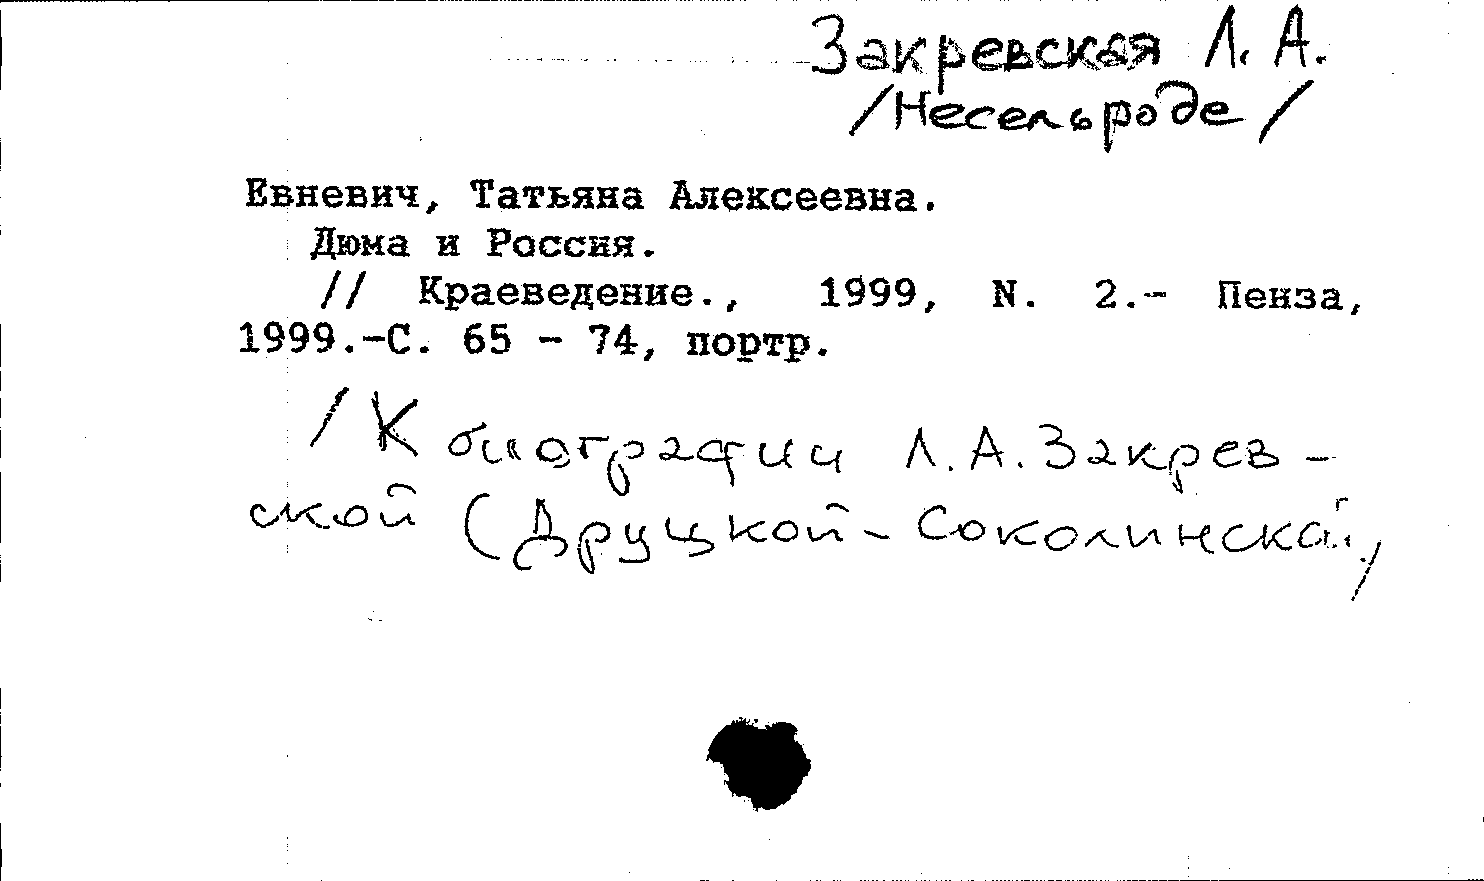 Закревская Л. А.
/Несельроде/
Евневич, Татьяна Алексеевна.
Дюма и Россия.
// Краеведение., 1999, N. 2.- Пенза,
1999.-С. 65 - 74, портр.
/К биографии Л.А. Закрев-
ской (Друцкой-Соколинской/